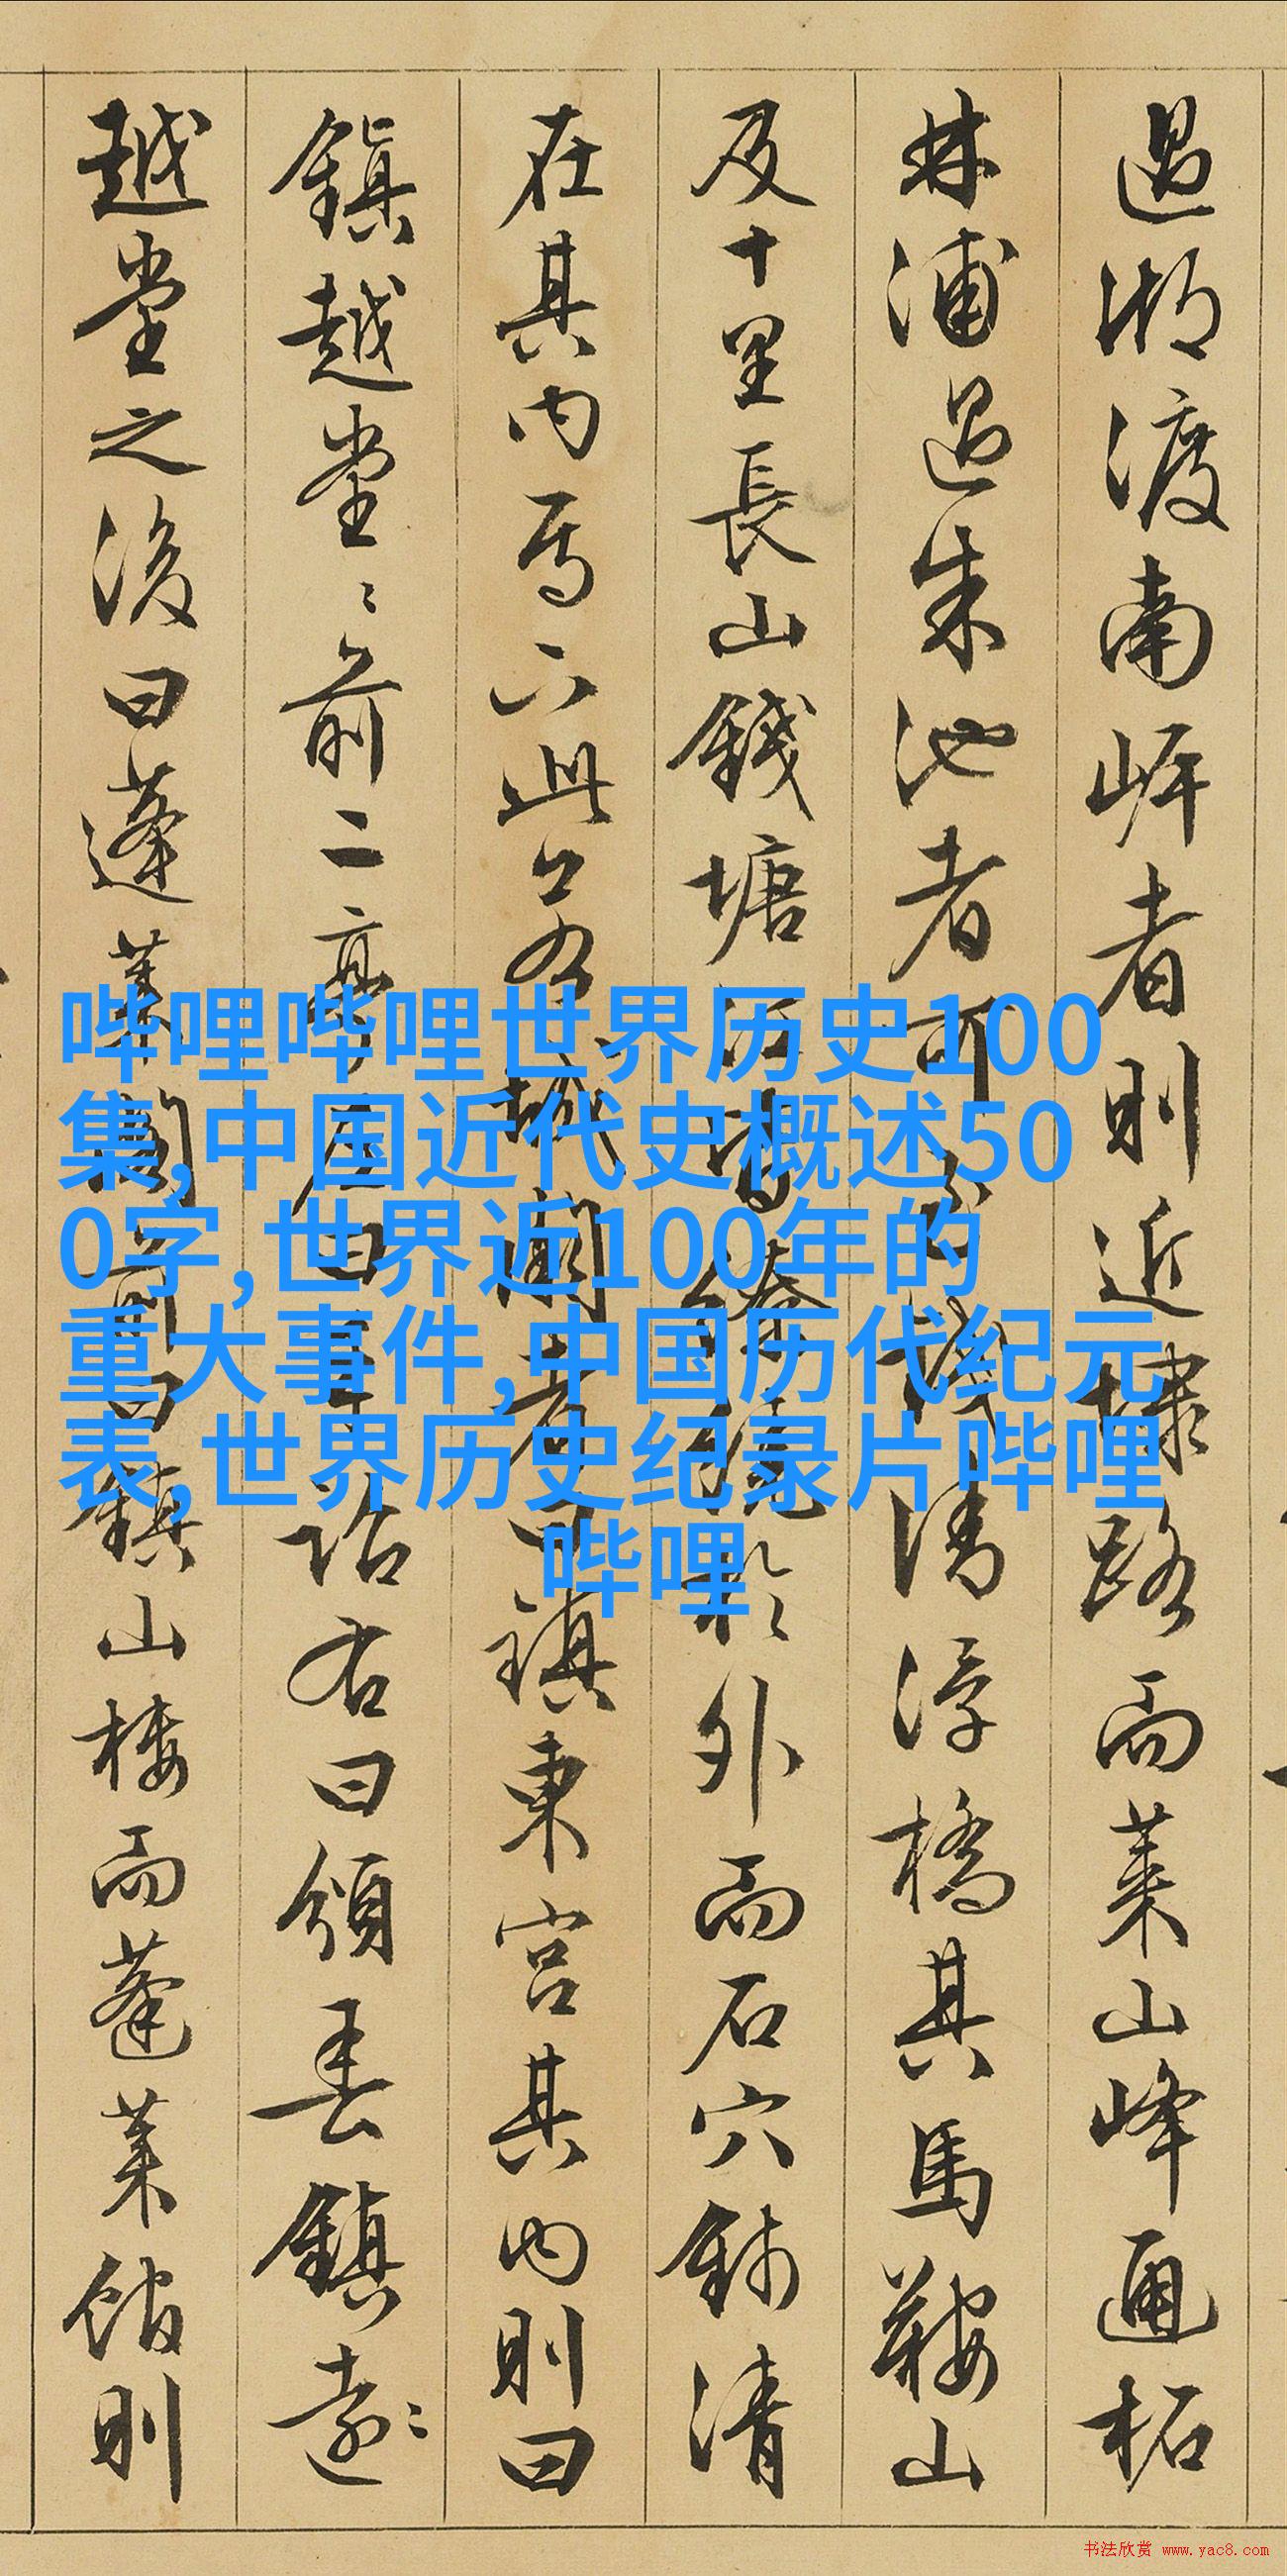 過湖渡南岸者則近埭路而萊山峰通柘
林浦過朱池者可錢清浮橋其馬鞍山
及十里長山錢塘外而石穴錦清
在其内焉六此公者鎮東宮其内則曰
鎮越堂〻前二亭右曰頒春鎮遠〻
越堂之後曰蓬萊閣鎮山樓而蓬萊館則
哔哩哔哩世界历史100
集,中国近代史概述50
0字,世界近100年的
重大事件,中国历代纪元
表,世界历史纪录片哔哩
哔哩
书法欣赏 www.yac8.com